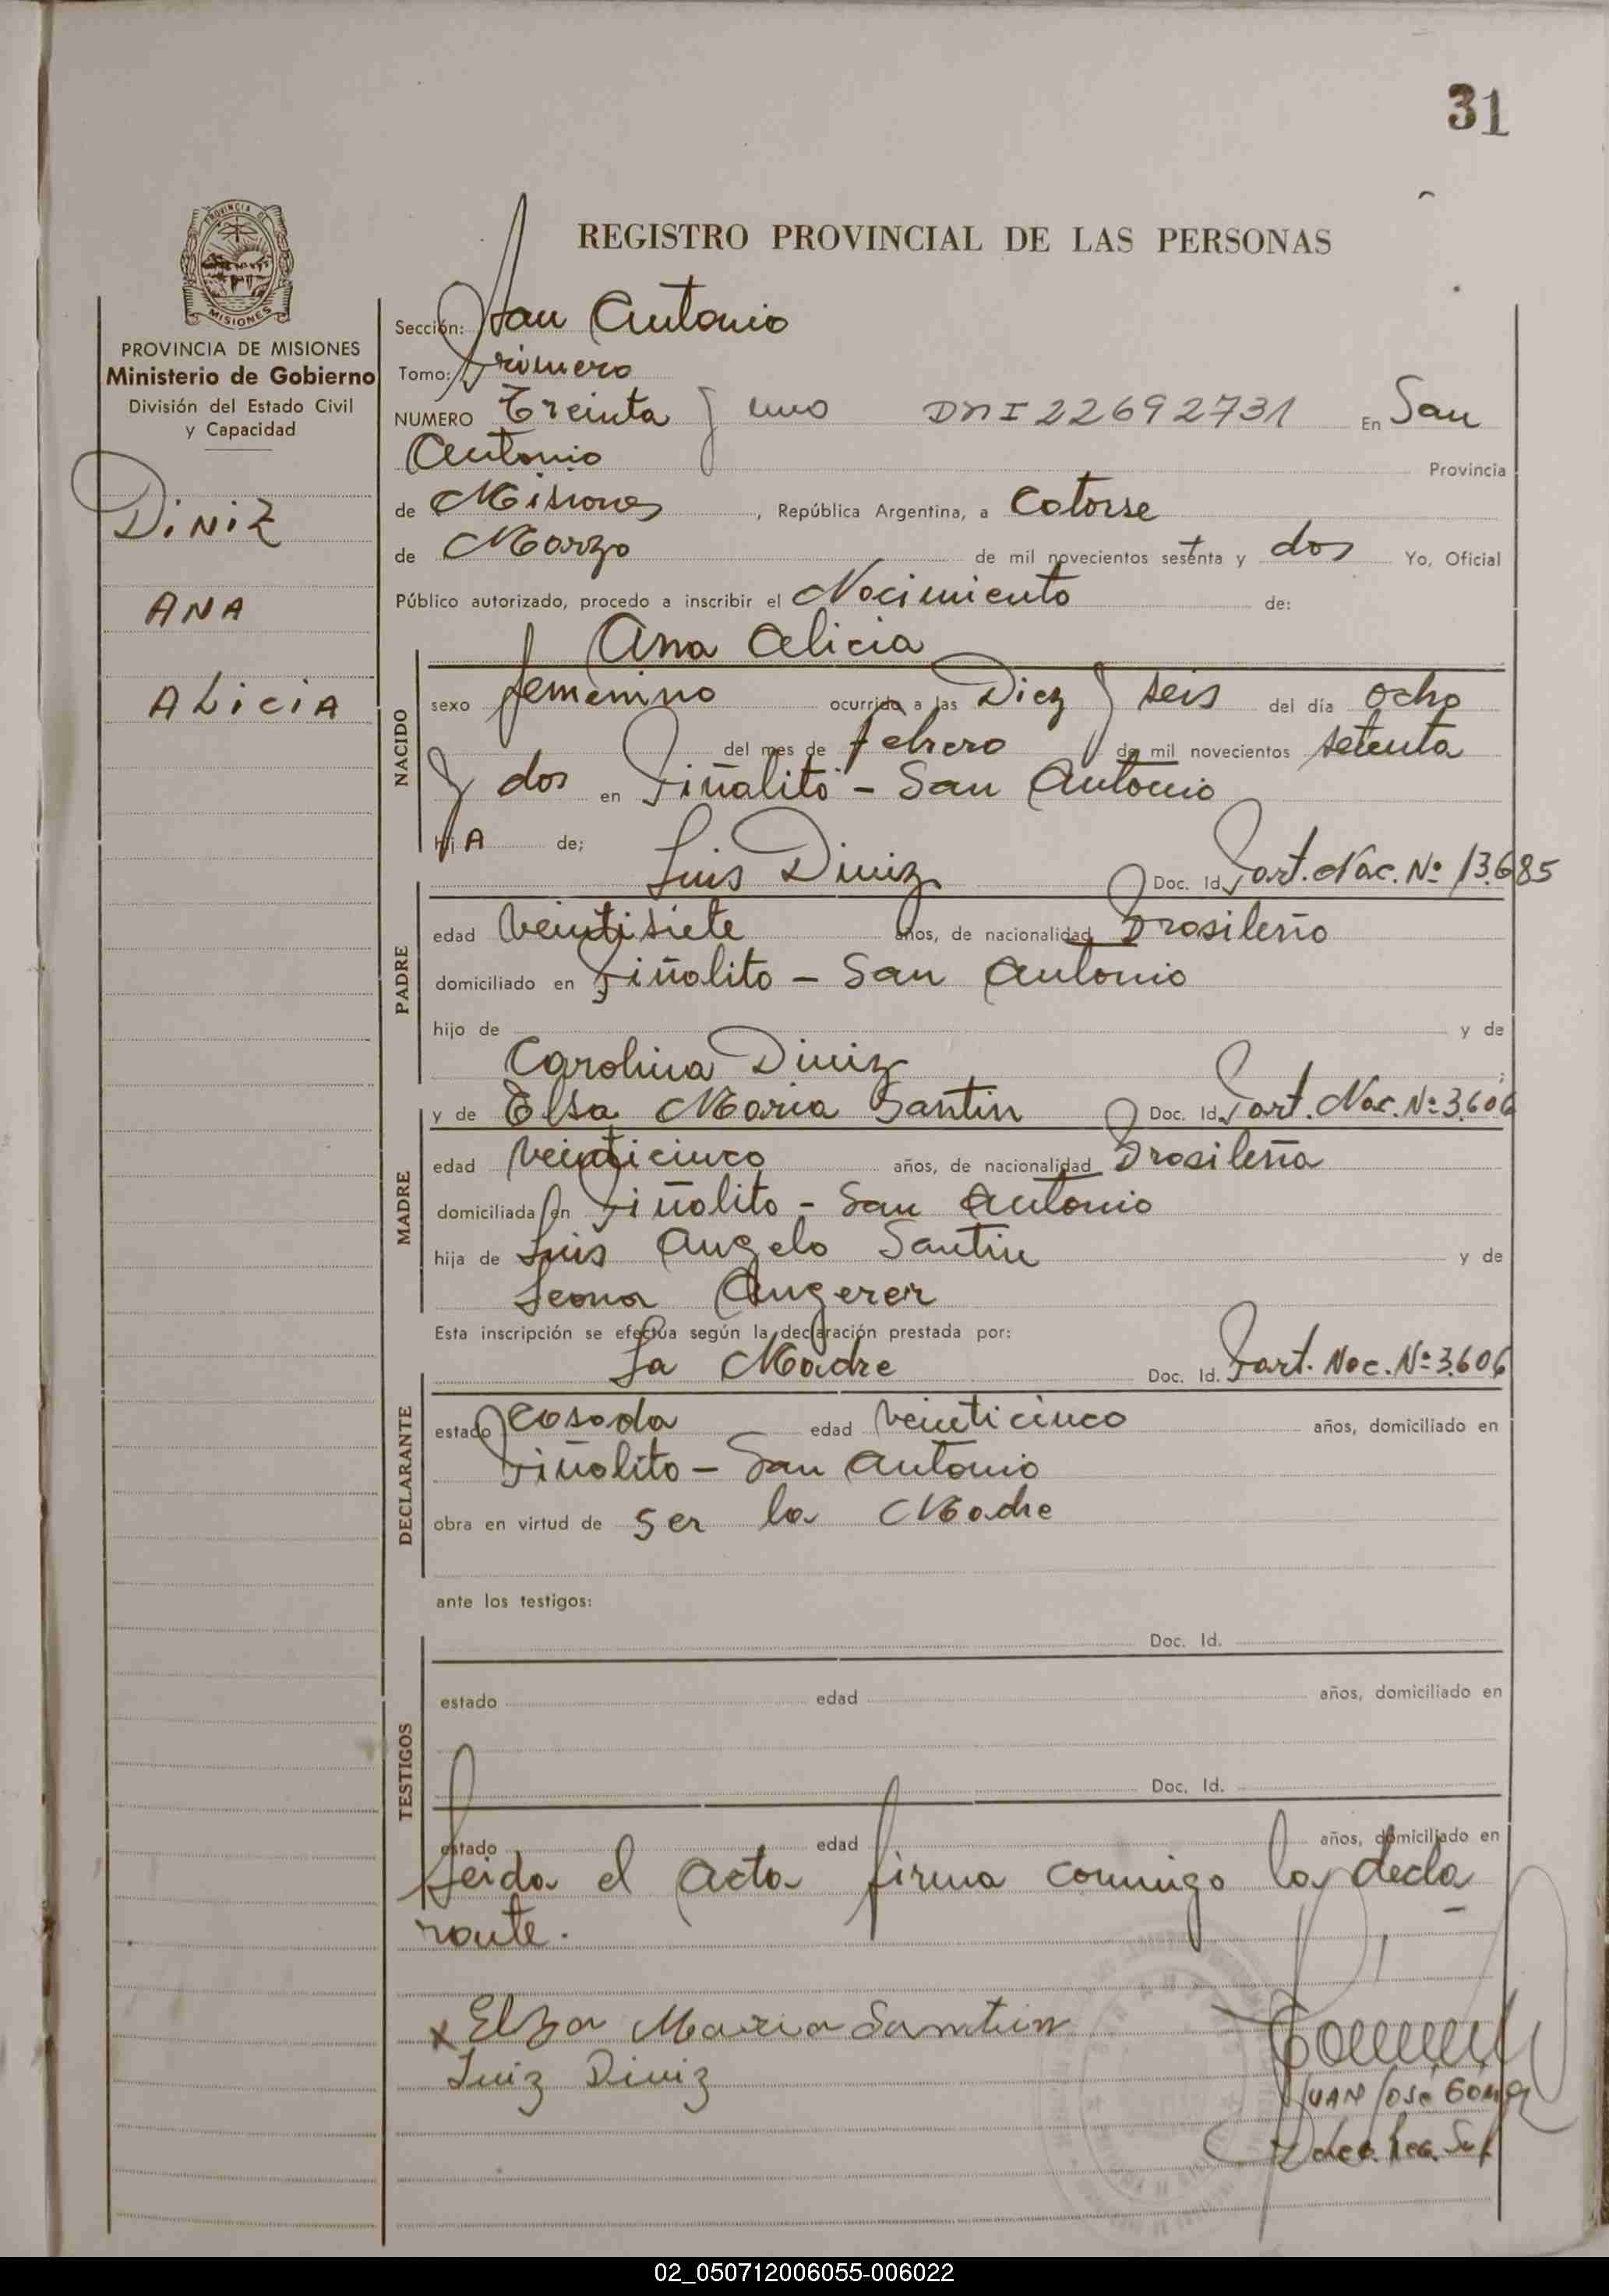 31
REGISTRO PROVINCIAL DE LAS PERSONAS
PROVINCIA DE MISIONES
Ministerio de Gobierno
División del Estado Civil
y Capacidad
DiNiZ
ANA
ALiCiA
Sección: San Antonio
Tomo: Primero
NUMERO Treinta y uno DNI 22692731 En San
Antonio Provincia
de Misiones, República Argentina, a Catorse
de Marzo de mil novecientos setenta y dos Yo, Oficial
Público autorizado, procedo a inscribir el Nacimiento de:
Ana Alicia
NACIDO
sexo femenino ocurrido a las Diez y seis del día ocho
del mes de febrero de mil novecientos setenta
y dos en Piñalito - San Antonio
hijA de;
Luis Diniz Doc. Id. Part. Nac. Nº 13.685
PADRE
edad veintisiete años, de nacionalidad Brasileño
domiciliado en Piñalito - San Antonio
hijo de y de
Carolina Diniz
y de Elsa Maria Santin Doc. Id. Part. Nac. Nº 3.606
MADRE
edad veinticinco años, de nacionalidad Brasileña
domiciliada en Piñalito - San Antonio
hija de Luis Angelo Santin y de
Leona Angerer
Esta inscripción se efectúa según la declaración prestada por:
La Madre Doc. Id. Part. Nac. Nº 3.606
DECLARANTE
estado casada edad veinticinco años, domiciliado en
Piñalito - San Antonio
obra en virtud de ser la Madre
ante los testigos:
Doc. Id.
TESTIGOS
estado edad años, domiciliado en
Doc. Id.
estado edad años, domiciliado en
Leida el acta firma conmigo la decla
rante.
x Elza Maria Santin
Luiz Diniz
JUAN JOSé
02_050712006055-006022